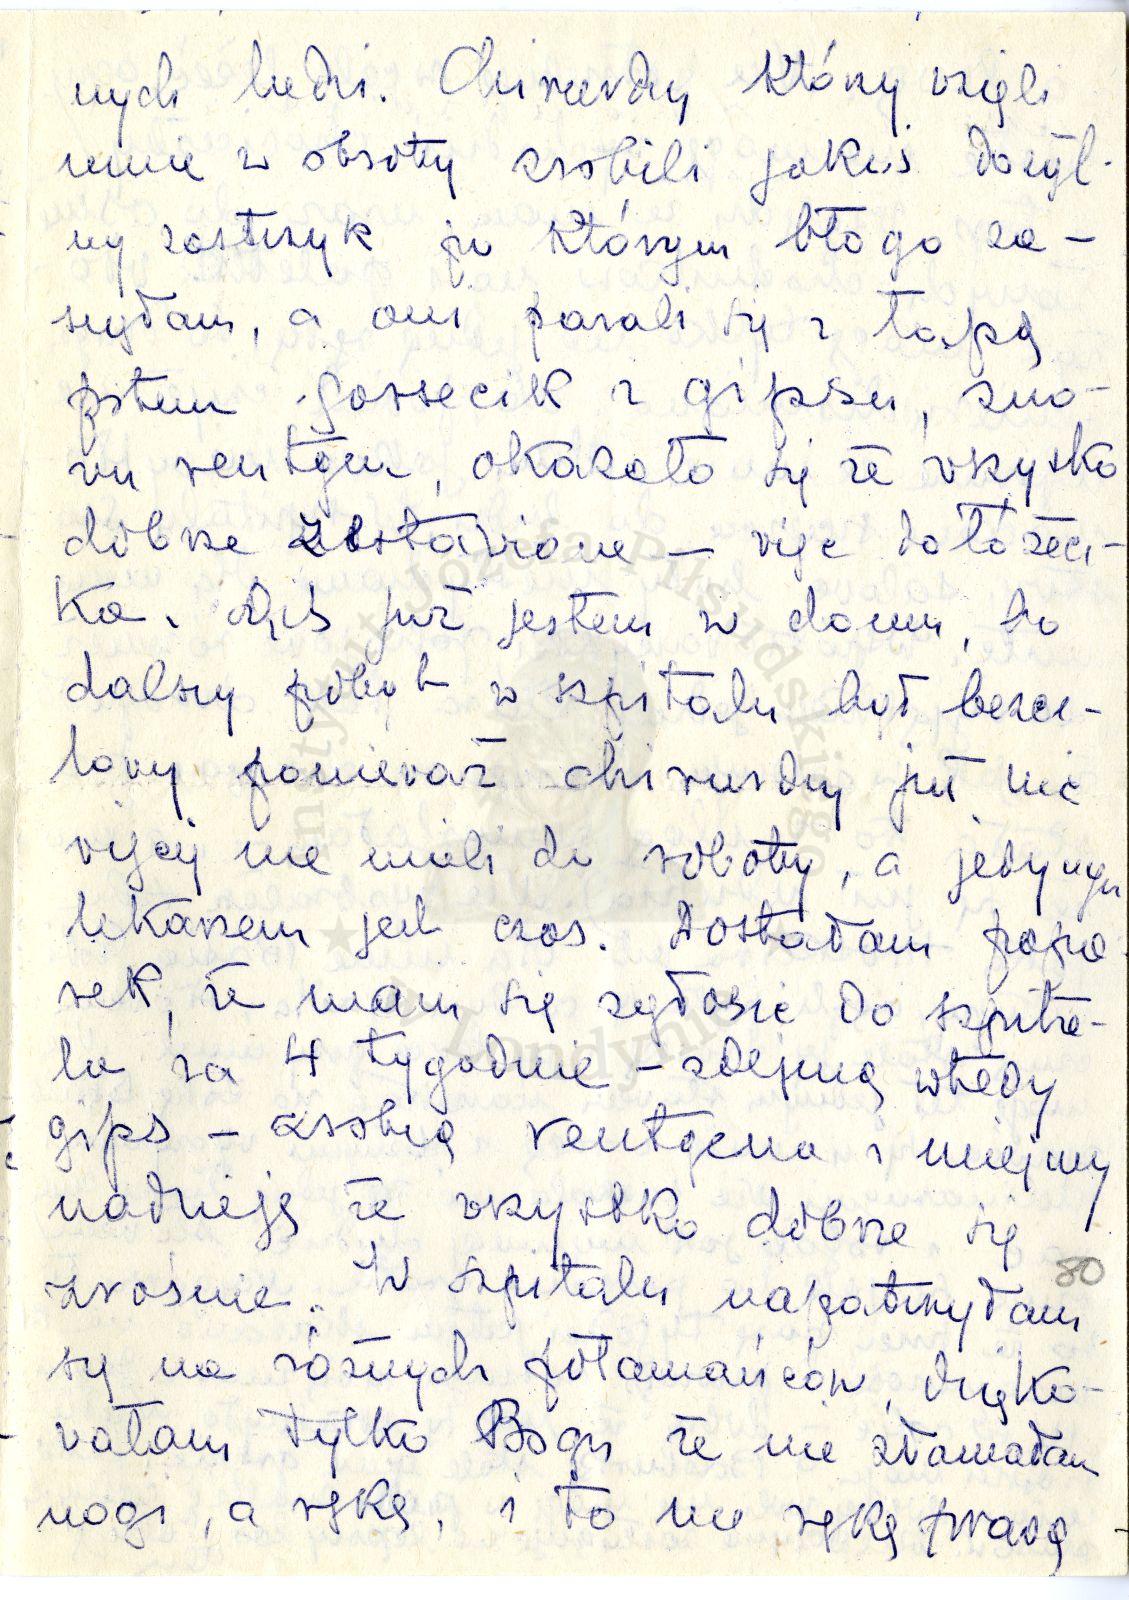 nych ludzi. Chirurdzy którzy wzięli
mnie w obroty zrobili jakiś dożyl-
ny zastrzyk po którym błogo za-
snęłam, a oni parali się z łapą
potem gorsecik z gipsu, zno-
wu rentgen, okazało się że wszystko
dobrze zestawione – więc do łóżecz-
ka. Dziś już jestem w domu, bo
dalszy pobyt w szpitalu był bezce-
lowy ponieważ chirurdzy już nic
więcej nie mieli do roboty, a jedynym
lekarzem jest czas. Dostałam papie-
rek, że mam się zgłosić do szpita-
la za 4 tygodnie – zdejmą wtedy
gips – zrobią rentgena i miejmy
nadzieję że wszystko dobrze się
zrośnie. W szpitalu napatrzyłam
80
się na różnych połamańców, dzięko-
wałam tylko Bogu że nie złamałam
nogi, a rękę, i to nie rękę prawą –
Instytut Józefa Piłsudskiego
w Londynie